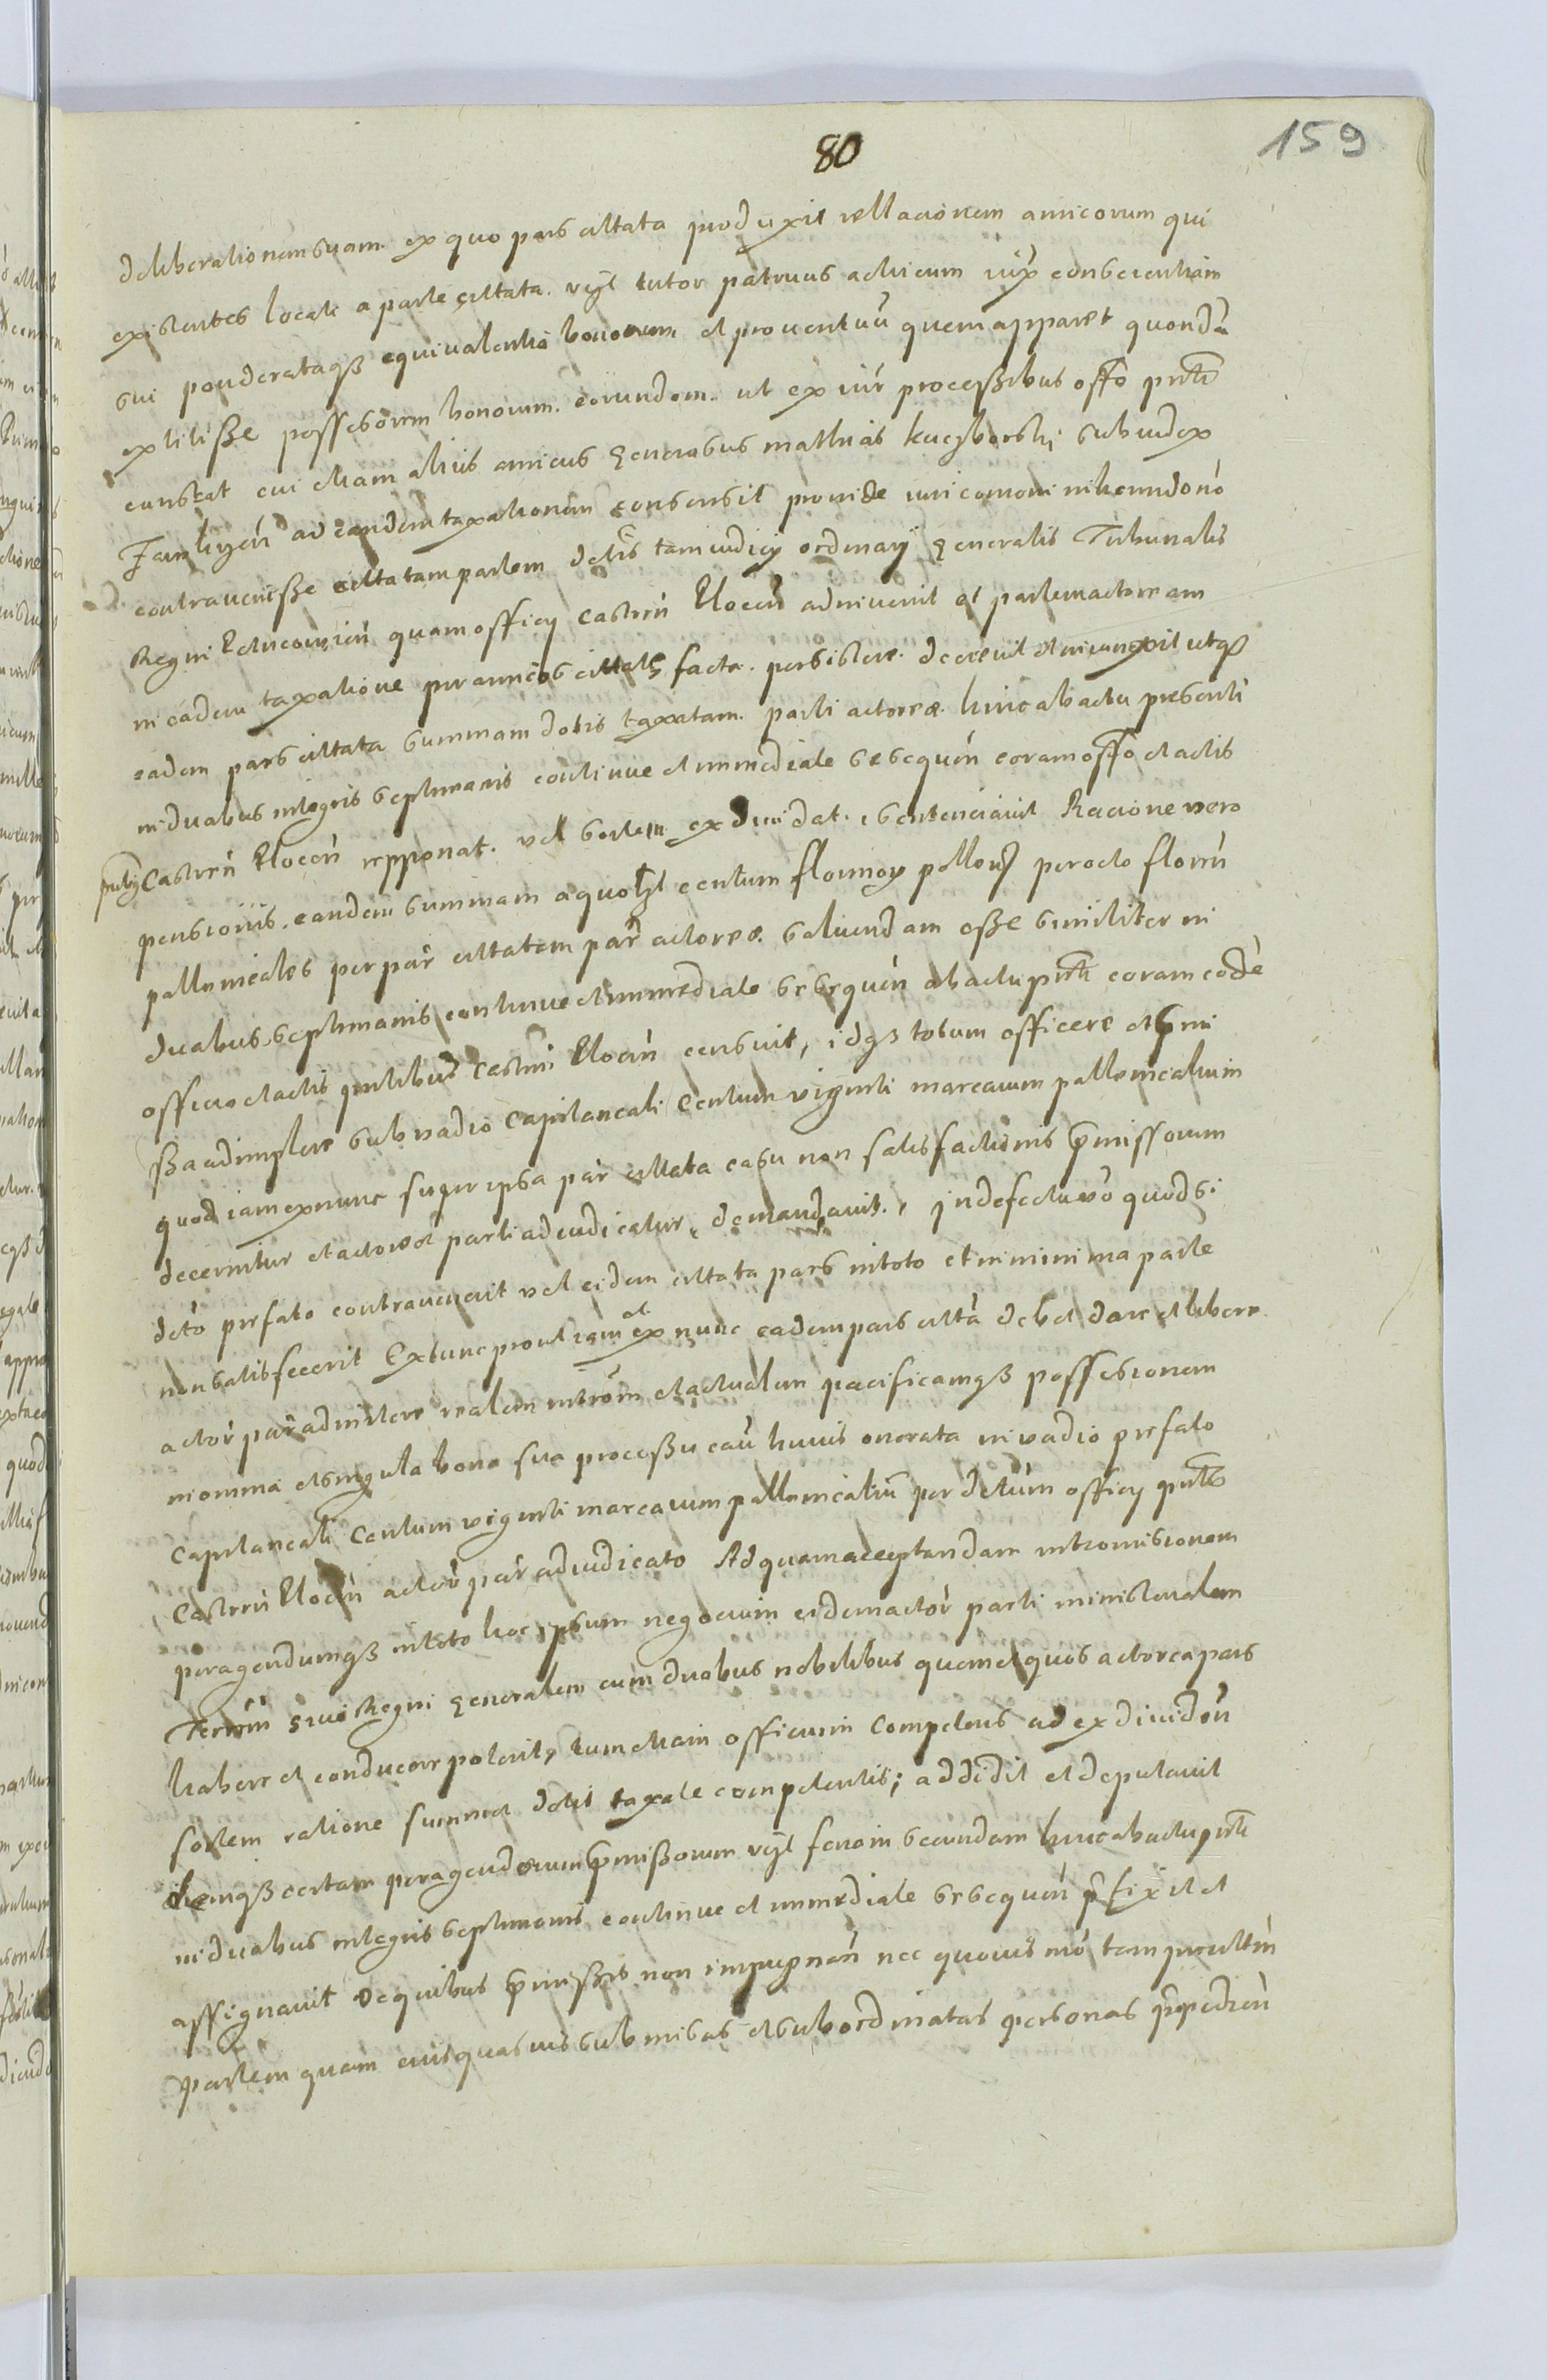 80
159
deliberationem suam ex quo pars citata produxit rellacionem amicorum qui
existentes locati a parte citata vżt tutor patruus ac amicum iux conscientiam
sui ponderataqß equivalentia bonorum et proventuũ quem apparet quondã
extitiße possesorem bonorum eorundem ut ex iur processibus offo pnti
constat cui etiam alius amicus generosus Mathias kuczborski subiudex
ad eandem taxationem consensit proinde iuri comoni inherendo nõ
contraveniße citatam partem detis tam iudicy ordinary generalis Tribunalis
Regni quam officy Castren Plocen adinvenit et partem actoream
in eadem taxatione per amicos citatę facta persistere decrevit et iniunxit utqß
eadem pars citata summam dotis taxatam parti actoreæ hinc ab actu presenti
in duabus integris septimanis continue et immediate sesequen coram offo et actis
pntibq Castren Plocen reponat vel sortem exdividat sentenciavit Racione vero
pensionis eandem summam a quolżt centum florinoꝝ pollon per octo floren
pollonicales per par citatam par actoreæ salvendam eße similiter in
duabus septimanis continue et immediate sesequen ab actu pnti coram eodẽ
officio et actis pntibus Castren Plocen censuit, idqß totum officere et pmi
ßa adimplere sub vadio Capitaneali Centum viginti marcarum pollonicalium
quod iam ex nunc super ipsa par citata casu non satisfactionis pmissorum
decernitur et actoreæ parti adiudicatur, demandavit. In defectu võ quod si
detõ prefato contravenerit vel eidem citata pars in toto et in minima parte
non satisfecerit Ex tunc prout iam et ex nunc eadem pars citta debet dare et libere
actor par admittere realem introm et actualem pacificamqß possesionem
in omnia et singula bona sua proceßu caũ huius onerata in vadio prefato
Capitaneali Centum viginti marcarum pollonicaliũ per detum officy pntis
Castren Plocen actor par adiudicato Ad quam acceptandam intromisionem
peragendumqß in toto hoc ipsum negocium eidem actor parti ministerialem
Terrõm sive Regni generalem cum duobus nobilibus quem et quos actorea pars
habere et conducere poterit, tum etiam officium competens ad exdividen
sortem ratione summæ dotis taxate competentis; addidit et deputavit
diemqß certam peragendorum pmißorum vżt feriam secundam hinc ab actu pnti
in duabus integris septimanis continue et immediate sesequen pfixit et
assignavit De quibus pmißis non impugnan nec quovis mõ tam per citm
partem quam eius quasvis submisas et subordinatas personas ppedien